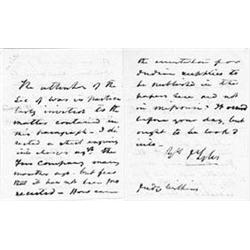 The attention of the
Sec of War is particu
larly invited to the
matter contained in
this paragraph - I di
rected a strict enquiry
into charges agst the
Fur Company many
months ago - but fear
that it has not been
- How came
the invitation for
Indian supplies to
be published in the
papers here and not
in Missouri? It was
before your day, but
ought to be looked
into -